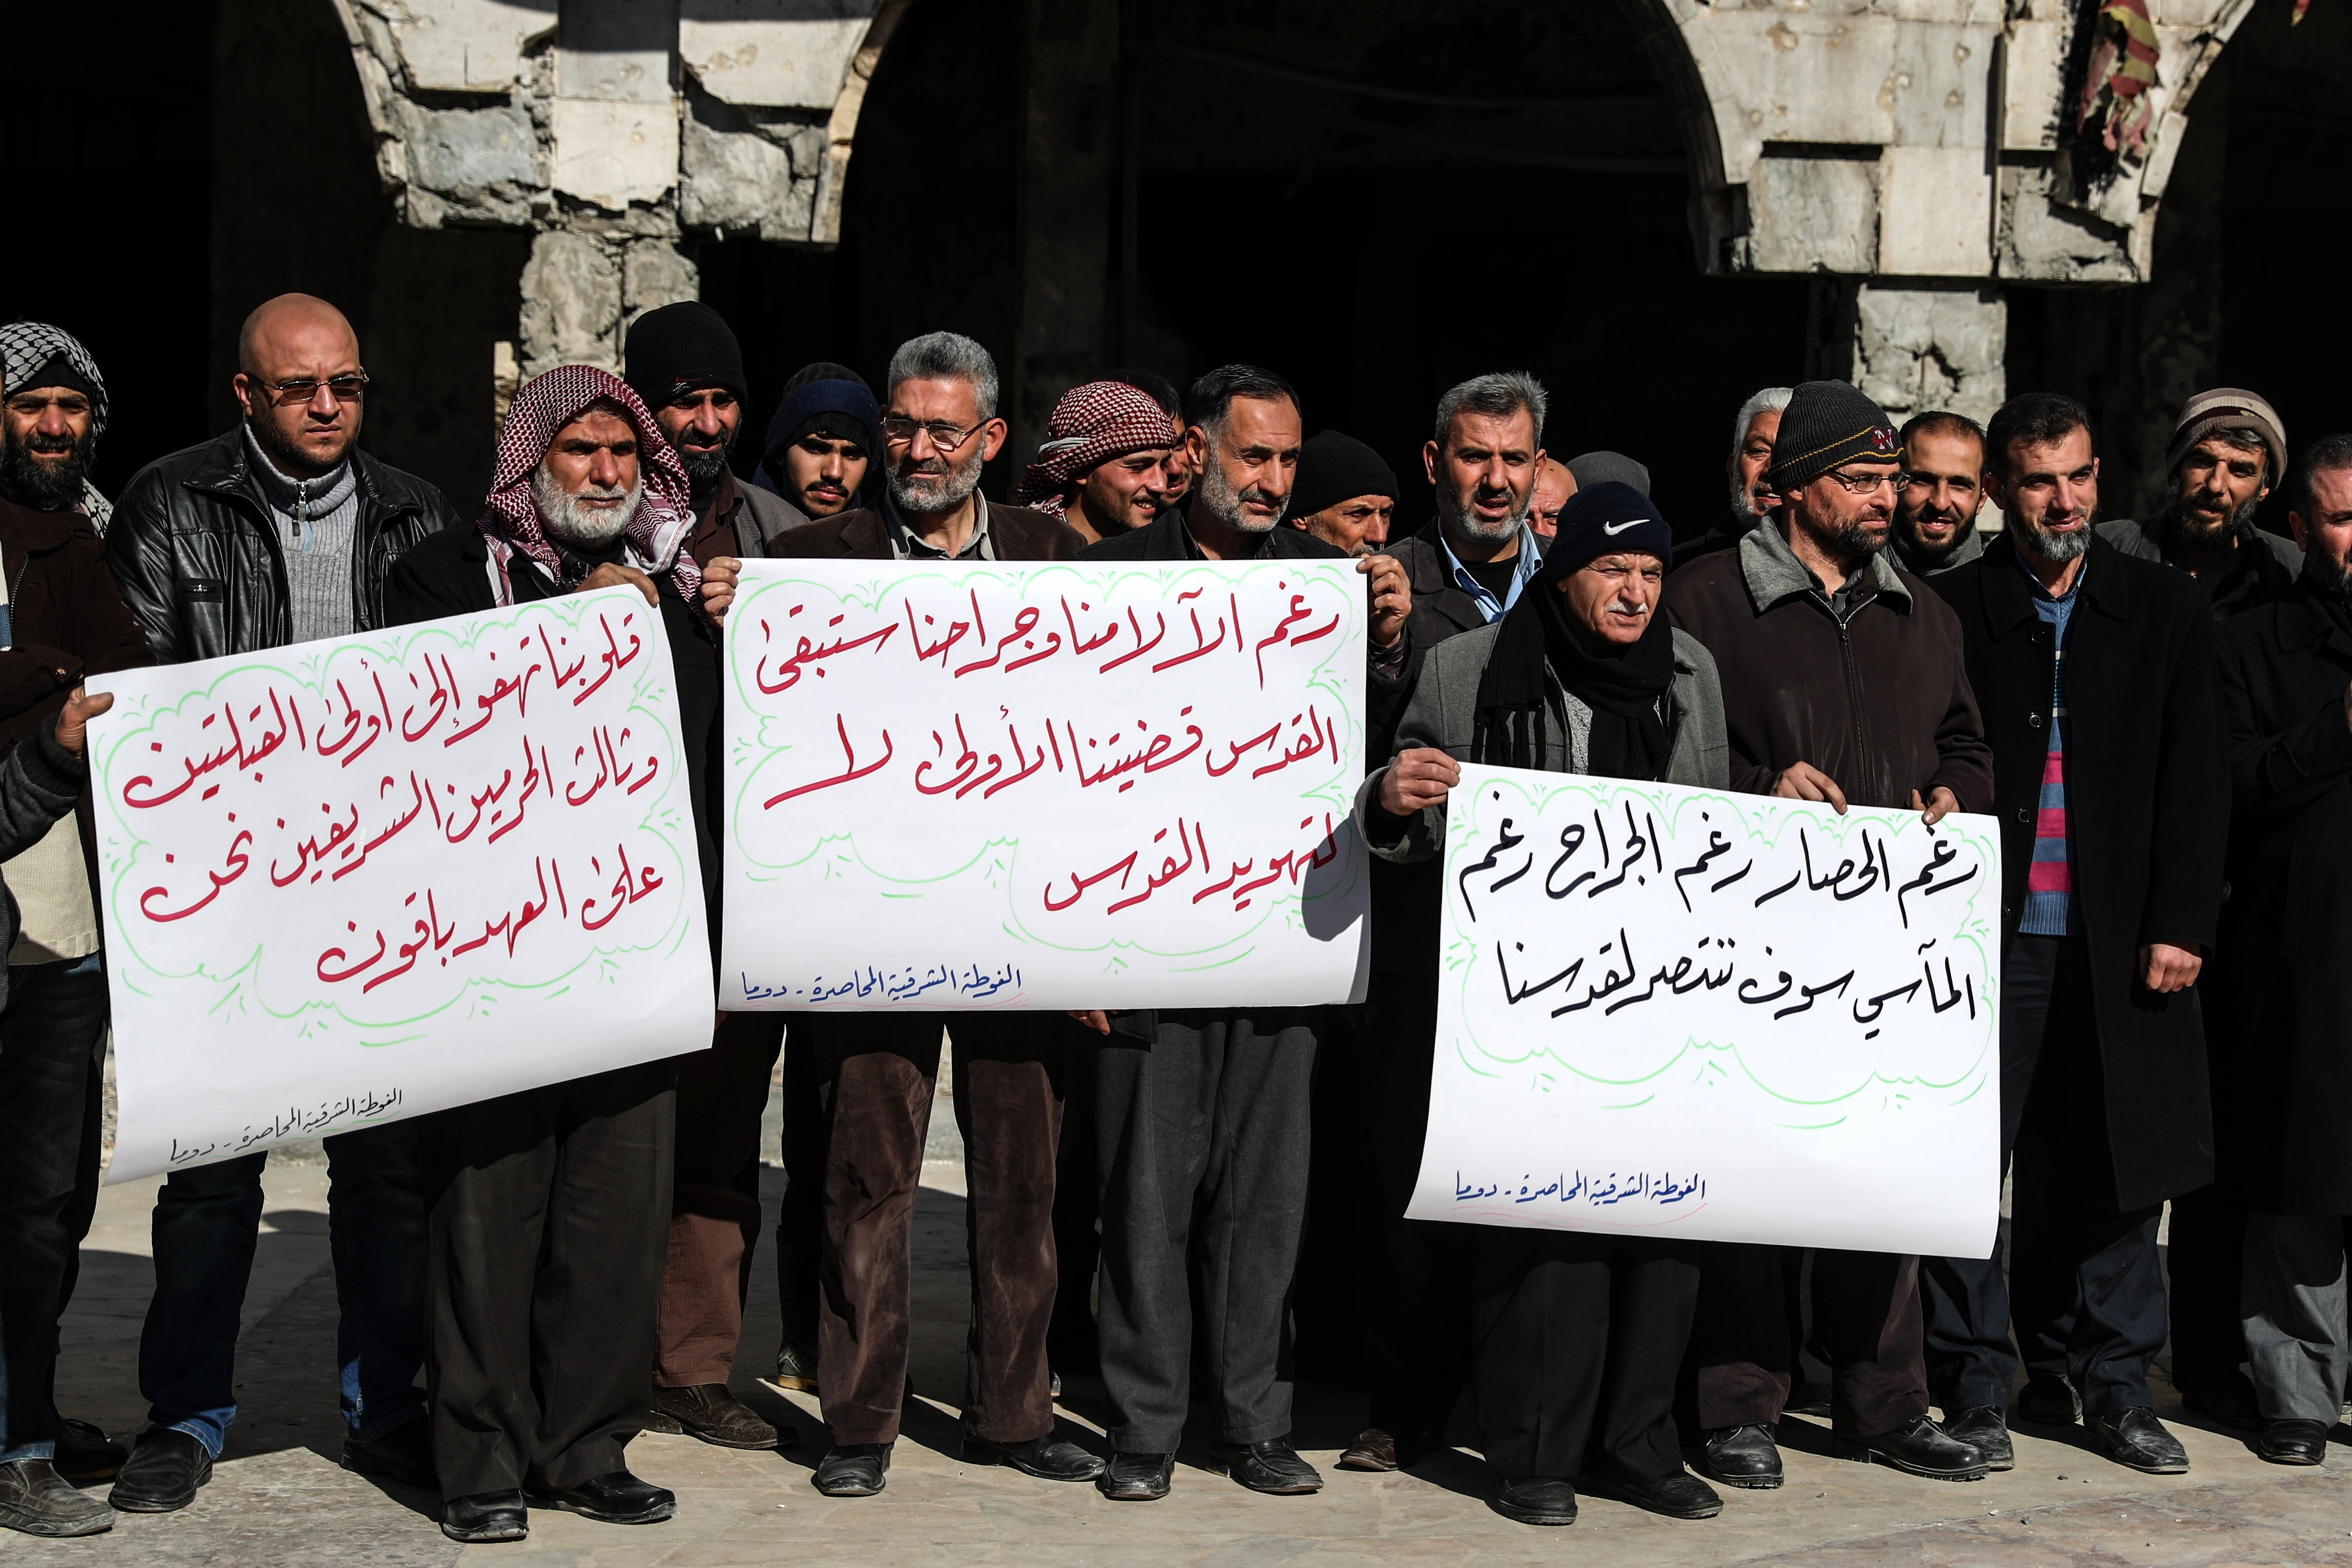 قلوبنا تهفو إلى أولى القبلتين
وثالث الحرمين الشريفين نحن
على العهد باقون
الغوطة الشرقية المحاصرة - دوما
رغم الآلامنا وجراحنا ستبقى
القدس قضيتنا الأولى لا
لتهويد القدس
الغوطة الشرقية المحاصرة - دوما
رغم الحصار رغم الجراح رغم
المآسي سوف ننتصر لقدسنا
الغوطة الشرقية المحاصرة - دوما